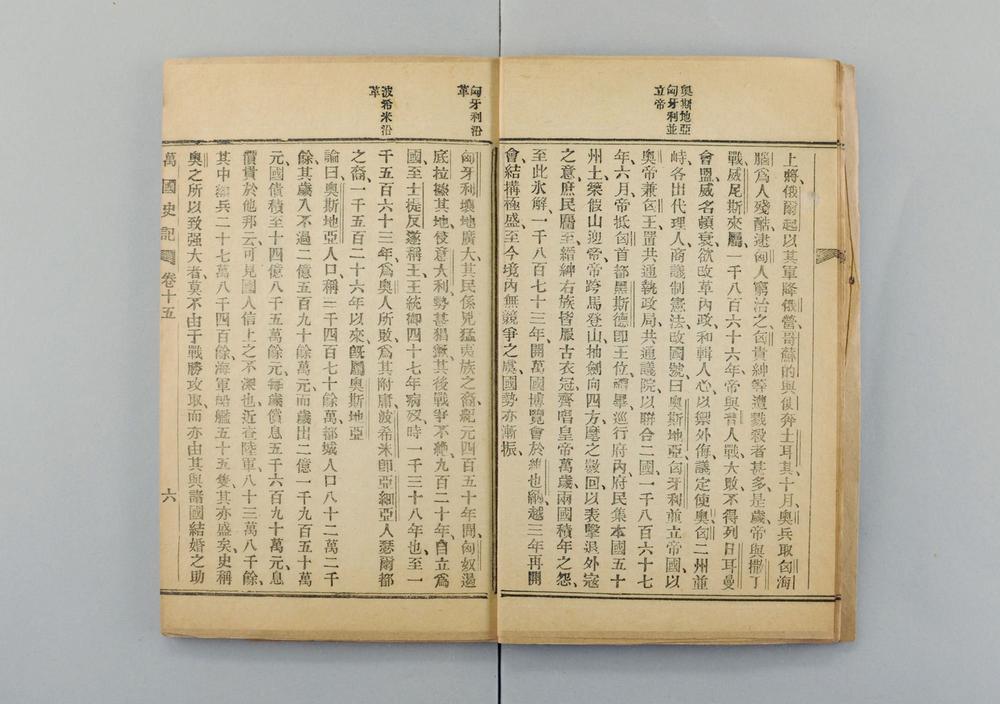 奧斯地亞
匈牙利並
立帝
上將俄爾起以其軍降俄營哥蘇的與後奔土耳其十月奧兵取匈海
腦爲人殘酷逮匈人窮治之匈貴紳等遭戮殺者甚多是歲帝與撒丁
戰威尼斯來屬一千八百六十六年帝與普人戰大敗不得列日耳曼
會盟威名頓衰欲改革內政和輯人心以禦外侮議定使奧匈二州並
峙各出代理人商議制憲法改國號曰奧斯地亞匈牙利並立帝國以
奧帝兼匈王置共通執政局共通議院以聯合二國一千八百六十七
年六月帝抵匈首部黑斯德卽王位禮畢巡行府內府民集本國五十
州土築假山迎帝帝跨馬登山抽劍向四方麾之數回以表擊退外寇
之意庶民屬至縉紳右族皆服古衣冠齊唱皇帝萬歲兩國積年之怨
至此氷解一千八百七十三年開萬國博覽會於維也納越三年再開
會結搆極盛至今境內無競爭之虞國勢亦漸振
匈牙利沿
革
波希米沿
革
匈牙利壤地廣大其民係兇猛夷族之裔紀元四百五十年間匈奴過
底拉據其地侵意大利勢甚猖獗其後戰爭不絕九百二十年自立爲
國至士提反遂稱王王統御四十七年病歿時一千三十八年也至一
千五百六十三年爲奧人所敗爲其附庸波希米卽亞細亞人瑟爾都
之裔一千五百二十六年以來旣屬奧斯地亞
論曰奧斯地亞人口稱三千四百七十餘萬都城人口八十二萬二千
餘其歲入不過二億五百九十餘萬元而歲出二億一千九百五十萬
元國債積至十四億八千五萬餘元每歲償息五千六百九十萬元息
價貴於他邦云可見國人信上之不深也近查陸軍八十三萬八千餘
其中細兵二十七萬八千四百餘海軍船艦五十五隻其亦盛矣史稱
奧之所以致强大者莫不由于戰勝攻取而亦由其與諸國結婚之助
萬國史記 卷十五 六